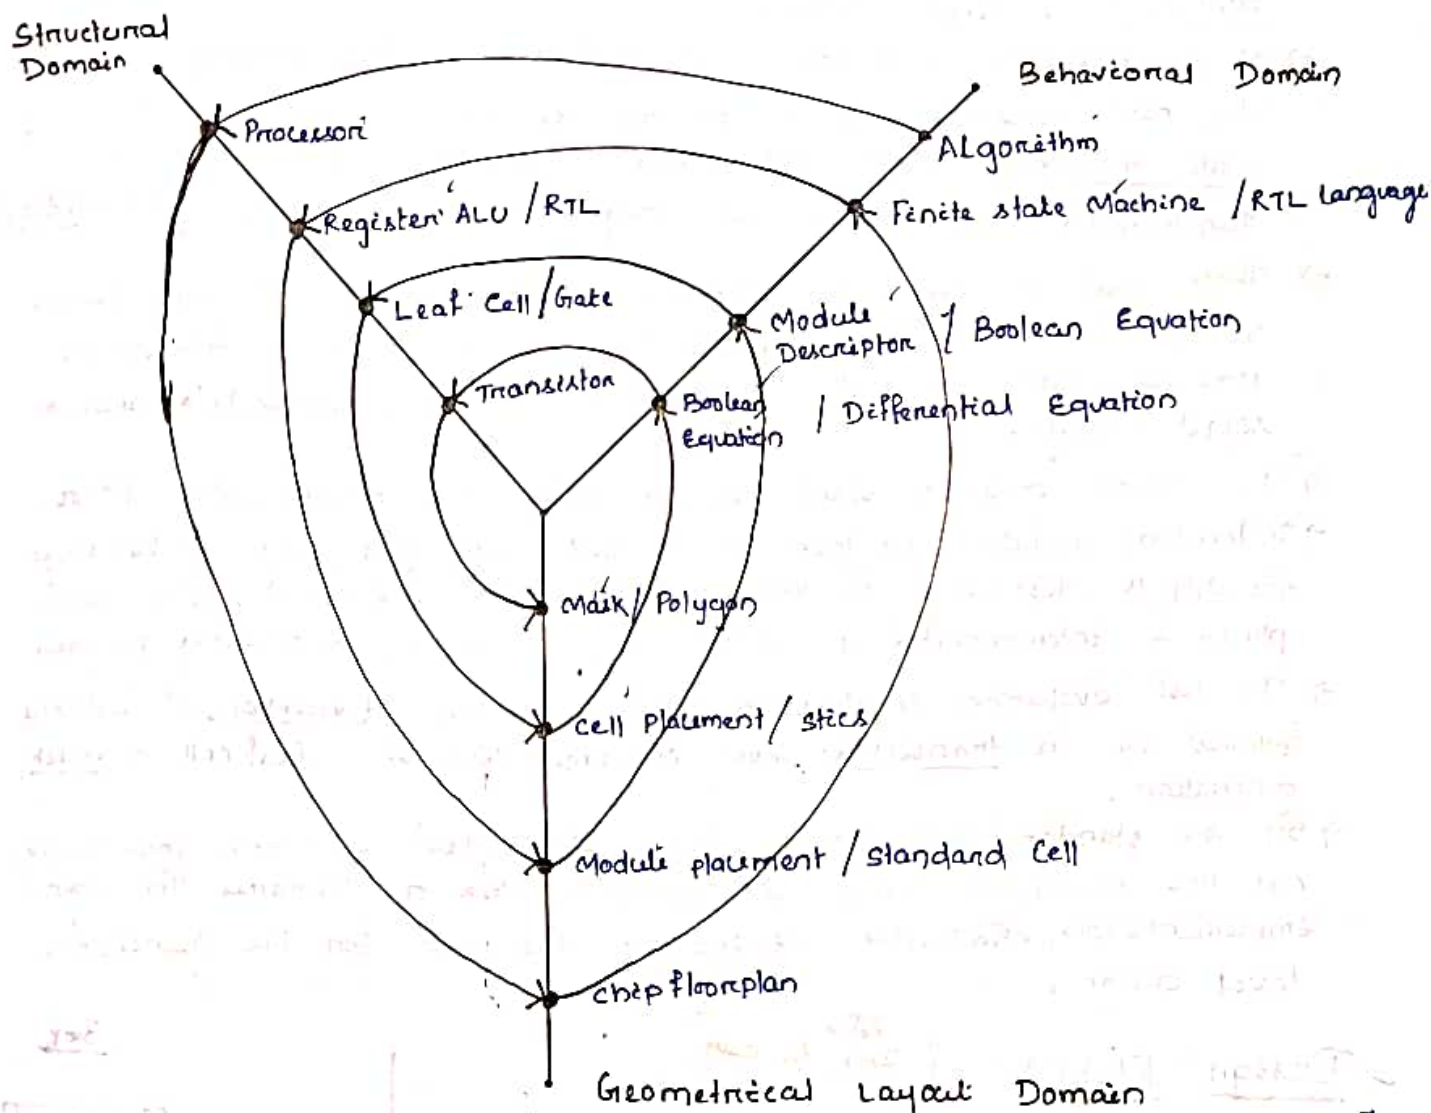 Structural
Domain
Behavioral Domain
Processor
Algorithm
Register ALU / RTL
Finite state Machine / RTL language
Leaf Cell / Gate
Module
Descriptor / Boolean Equation
Transistor
Boolean
Equation / Differential Equation
Mask / Polygon
Cell placement / stics
Module placement / standard Cell
chip floorplan
Geometrical Layout Domain